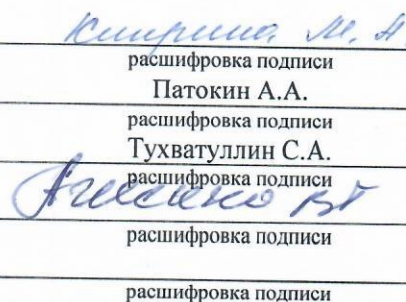 М.
расшифровка подписи
Патокин А.А.
расшифровка подписи
Тухватуллин С.А.
расшифровка подписи
расшифровка подписи
расшифровка подписи